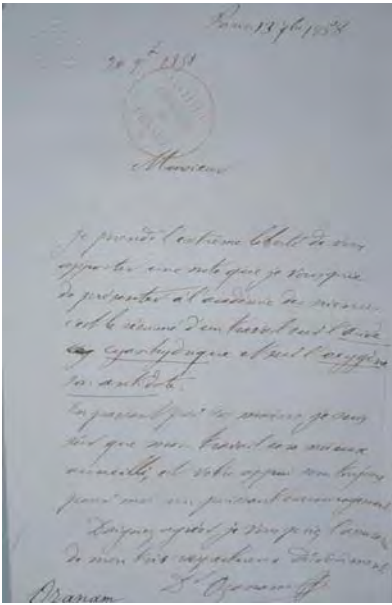 Paris 13 7bre 1858
20 7bre 1858
Monsieur
Je prends l'extrême liberté de vous
apporter une note que je vous prie
de présenter à l'académie des sciences
c'est le résumé d'un travail sur l'acide
cyanhydrique et sur l'oxygène
son antidote.
En passant par vos mains, je suis
sûr que mon travail sera mieux
accueilli, et votre appui sera toujours
pour moi un puissant encouragement
Daignez agréer je vous prie l'
de mon très respectueux dévouement
Dr Ozanam
Ozanam